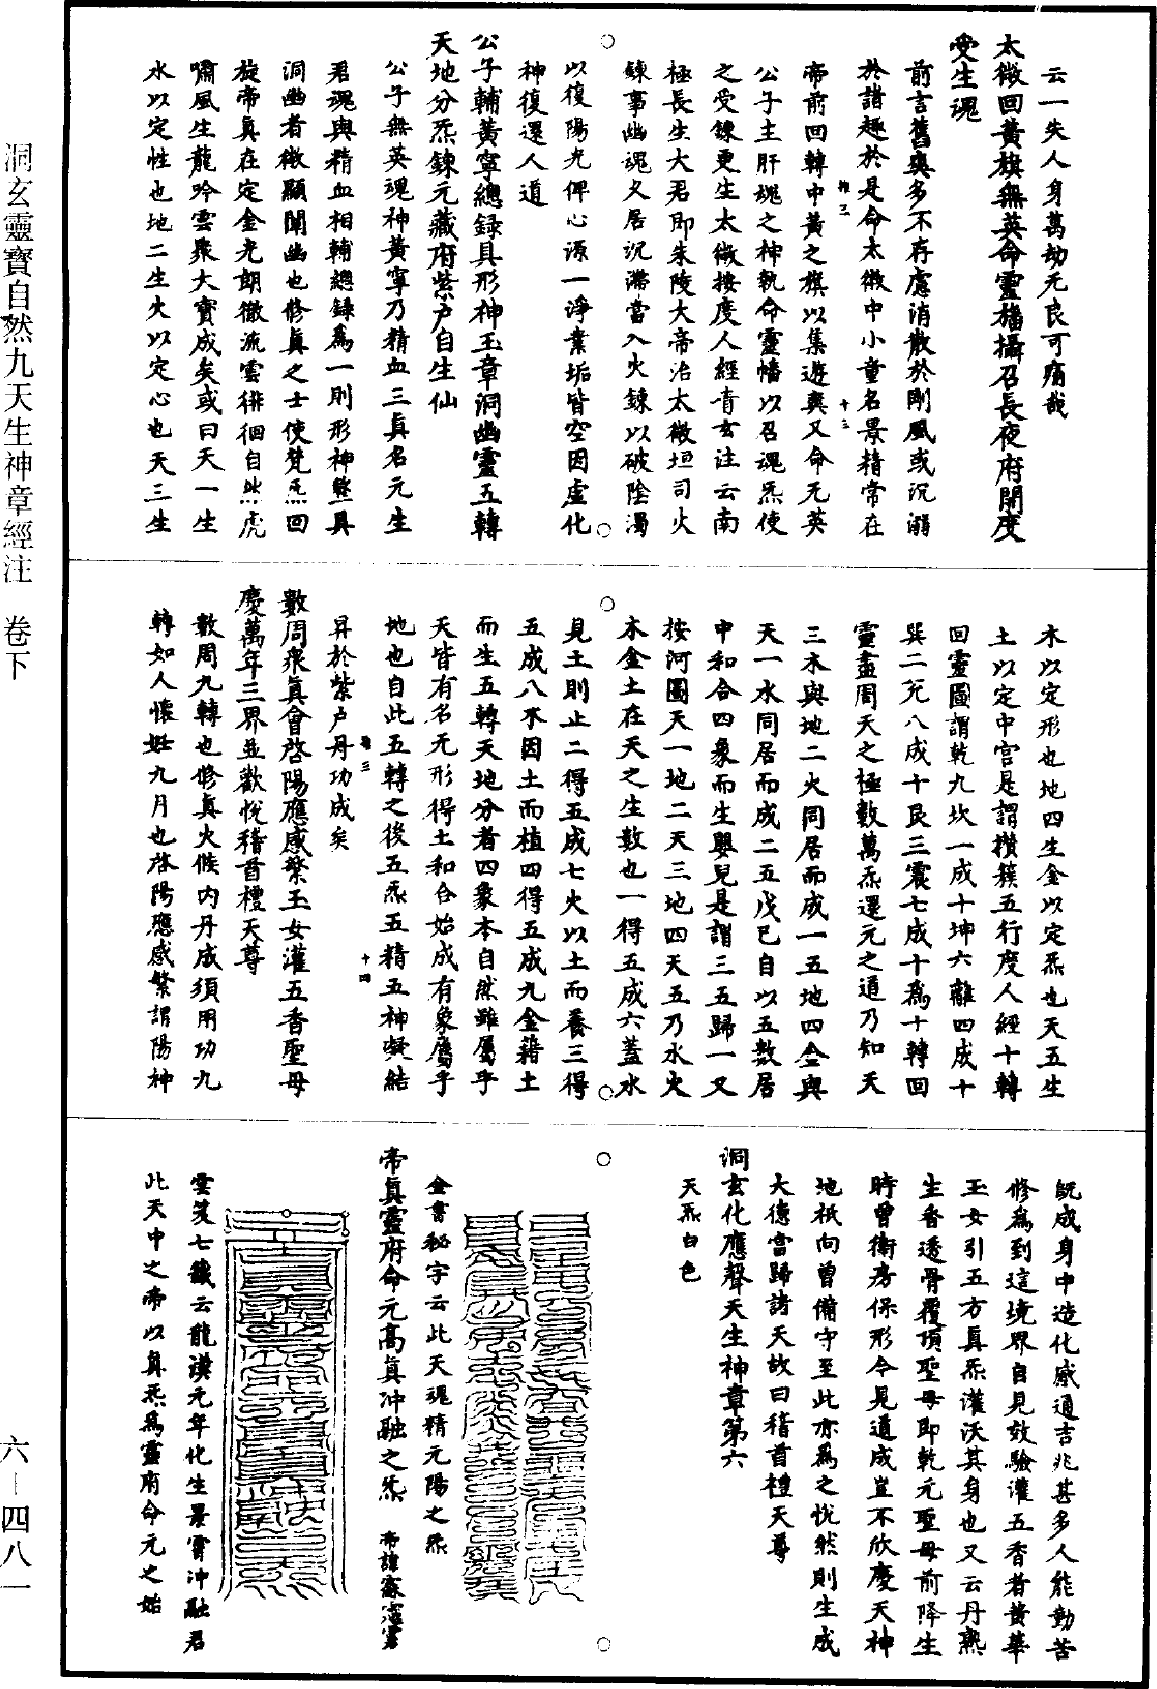 云一失人身萬劫无良可痛哉
太微回黃旗無英命靈旛攝召長夜府開度
受生魂
前言舊輿多不存慮消散於剛風或沉溺
於諸趣於是命太微中小童名景精常在
帝前回轉中黃之旗以集遊爽又命无英
公子主肝魂之神執命靈幡以召魂炁使
之受鍊更生太微按度人經青玄注云南
極長生大君即朱陵大帝治太微垣司火
鍊事幽魂久居沉滯當入火鍊以破陰濁
以復陽光俾心源一淨業垢皆空因虛化
神復還人道
公子輔黃寧總録具形神玉章洞幽靈五轉
天地分炁鍊元藏府紫戶自生仙
公子無英魂神黃寧乃精血三眞名元生
君魂與精血相輔總録爲一則形神堅具
洞幽者微顯闡幽也修眞之士使梵炁回
旋帝眞在定金光朗徹流雲徘徊自然虎
嘯風生龍吟雲聚大寶成矣或曰天一生
水以定性也地二生火以定心也天三生
木以定形也地四生金以定炁也天五生
土以定中宮是謂攢簇五行度人經十轉
回靈圖謂乾九坎一成十坤六離四成十
巽二兌八成十艮三震七成十爲十轉回
靈盡周天之極數萬炁還元之道乃知天
三木與地二火同居而成一五地四金與
天一水同居而成二五戊己自以五數居
中和合四象而生嬰兒是謂三五歸一又
按河圖天一地二天三地四天五乃水火
木金土在天之生數也一得五成六蓋水
見土則止二得五成七火以土而養三得
五成八木因土而植四得五成九金藉土
而生五轉天地分者四象本自然雖屬乎
天皆有名无形得土和合始成有象屬乎
地也自此五轉之後五炁五精五神凝結
昇於紫戶丹功成矣
數周衆眞會啓陽應感繁玉女灌五香聖母
慶萬年三界並歡悅稽首禮天尊
數周九轉也修眞火候内丹成須用功九
轉如人懷姙九月也啓陽應感繁謂陽神
既成身中造化感通吉兆甚多人能勤苦
修爲到這境界自見效驗灌五香者黃華
玉女引五方眞炁灌沃其身也又云丹熟
生香透骨覆頂聖母即乾元聖母前降生
時曾衛房保形今見道成豈不欣慶天神
地祇向曾備守至此亦爲之悅然則生成
大德當歸諸天故曰稽首禮天尊
洞玄化應聲天生神章第六
天炁白色
金書秘字云此天魂精元陽之炁
帝眞靈府命元高眞冲融之炁
雲笈七籤云龍漢元年化生景霄冲融君
此天中之帝以眞炁爲靈府命元之始
洞玄靈寶自然九天生神章經注 卷下
六—四八一